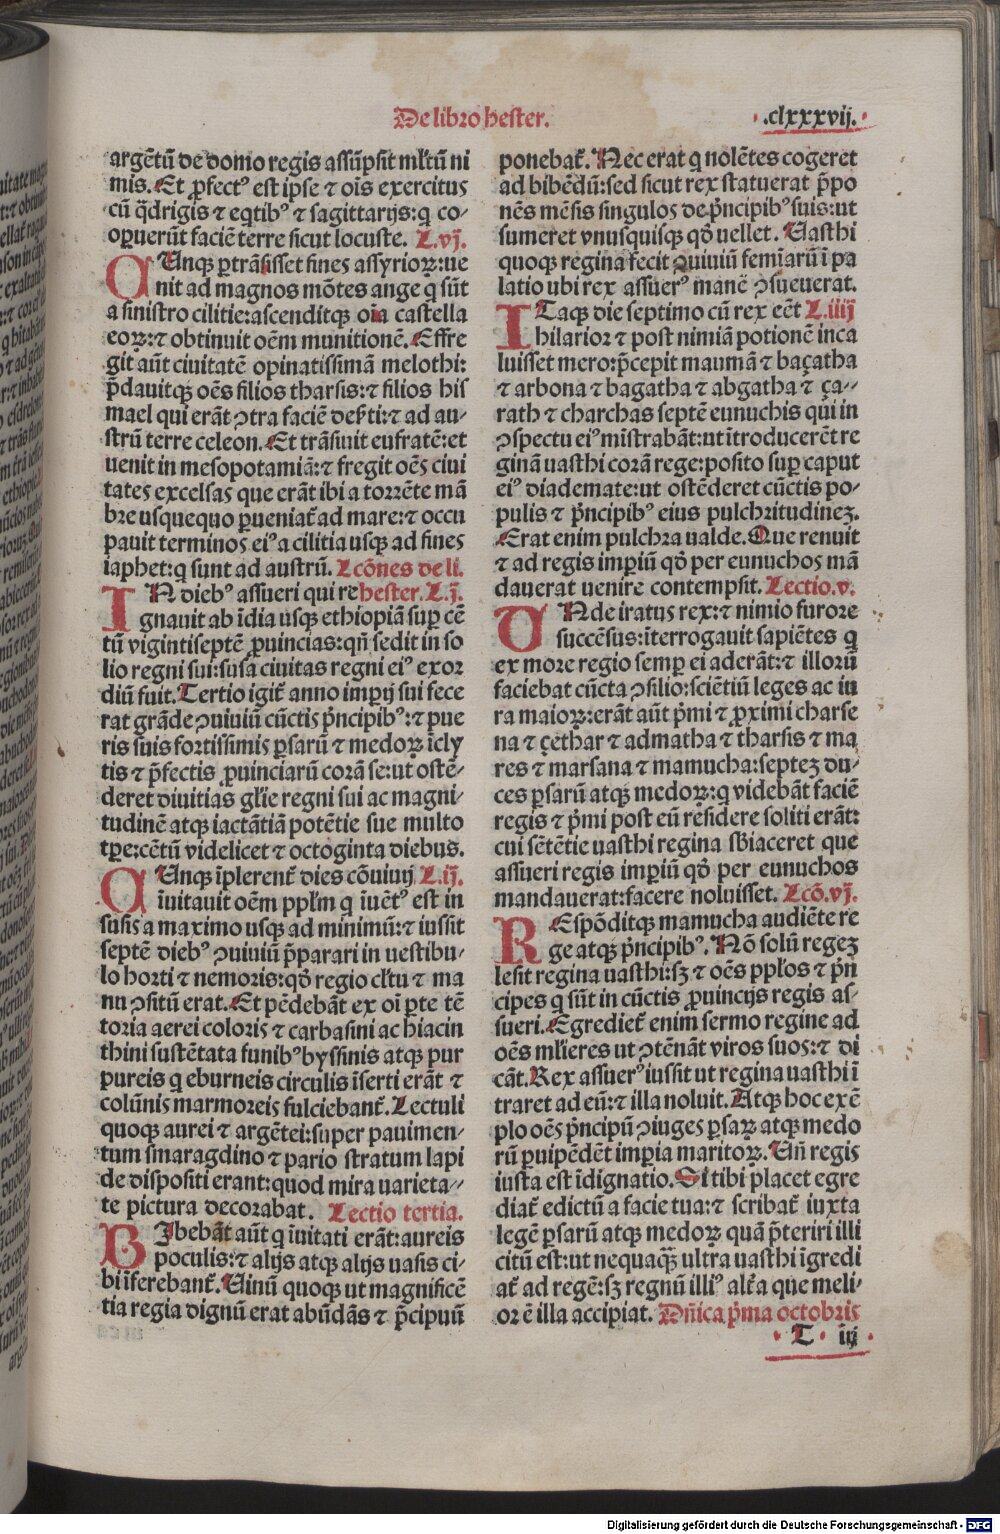 De libro hester.
.clxxxvij.
argētū de domo regis assūpsit ml̄tū ni
mis. Et ꝓfectꝰ est ipse ⁊ oīs exercitus
cū q̄drigis ⁊ eqtibꝰ ⁊ sagittarijs: q̄ co-
oꝑuerūt faciē terre sicut locuste. L.vj.
CUnqꝫ ꝑtrāsisset fines assyrioꝝ: ue
nit ad magnos mōtes ange q̄ sūt
a sinistro cilitie: ascenditqꝫ oīa castella
eoꝝ: ⁊ obtinuit oēm munitionē. Effre
git aūt ciuitatē opinatissimā melothi:
p̄dauitqꝫ oēs filios tharsis: ⁊ filios his
mael qui erāt ↄtra faciē des̄ti: ⁊ ad au-
strū terre celeon. Et trāsiuit eufratē: et
uenit in mesopotamiā: ⁊ fregit oēs ciui
tates excelsas que erāt ibi a torrēte mā
bre usquequo ꝑueniat̄ ad mare: ⁊ occu
pauit terminos eiꝰ a cilitia usqꝫ ad fines
iaphet: q̄ sunt ad austrū. Lcōnes de li.
IN diebꝰ assueri qui re hester. L.j.
gnauit ab īdia usqꝫ ethiopiā suꝑ cē
tū vigintiseptē ꝓuincias: qn̄ sedit in so
lio regni sui: susā ciuitas regni eiꝰ exor
diū fuit. Tertio igit̄ anno imꝑij sui fece
rat grāde ↄuiuiū cūctis p̄ncipibꝰ: ⁊ pue
ris suis fortissimis ꝑsarū ⁊ medoꝝ īcly
tis ⁊ p̄fectis ꝓuinciarū corā se: ut ostē-
deret diuitias gl̄ie regni sui ac magni-
tudinē atqꝫ iactātiā potētie sue multo
tꝑe: cētū videlicet ⁊ octoginta diebus.
CUnqꝫ īplerent̄ dies cōuiuij L.ij.
īuitauit oēm ppl̄m q̄ īuēt̄ꝰ est in
susis a maximo usqꝫ ad minimū: ⁊ iussit
septē diebꝰ ↄuiuiū p̄parari in uestibu-
lo horti ⁊ nemoris: qd̄ regio cl̄tu ⁊ ma
nu ↄsitū erat. Et pēdebāt ex oī ꝑte tē
toria aerei coloris ⁊ carbasini ac hiacin
thini sustētata funibꝰ byssinis atqꝫ pur
pureis q̄ eburneis circulis īserti erāt ⁊
colūnis marmoreis fulciebant̄. Lectuli
quoqꝫ aurei ⁊ argētei: super pauimen-
tum smaragdino ⁊ pario stratum lapi
de dispositi erant: quod mira uarieta-
te pictura decorabat. Lectio tertia.
BIbebāt aūt q̄ īuitati erāt: aureis
poculis: ⁊ alijs atqꝫ alijs uasis ci-
bi īferebant̄. Vinū quoqꝫ ut magnificē
tia regia dignū erat abūdās ⁊ p̄cipuū
ponebat̄. Nec erat q̄ nolētes cogeret
ad bibēdū: sed sicut rex statuerat p̄po
nēs mēsis singulos de p̄ncipibꝰ suis: ut
sumeret vnusquisqꝫ qd̄ uellet. Vasthi
quoqꝫ regina fecit ↄuiuiū femīarū ī pa
latio ubi rex assuerꝰ manē ↄsueuerat.
ITaqꝫ die septimo cū rex eēt L.iiij
hilarior ⁊ post nimiā potionē inca
luisset mero: p̄cepit maumā ⁊ baçatha
⁊ arbona ⁊ bagatha ⁊ abgatha ⁊ ça-
rath ⁊ charchas septē eunuchis qui in
ↄspectu eiꝰ mīstrabāt: ut ītroducerēt re
ginā uasthi corā rege: posito suꝑ caput
eiꝰ diademate: ut ostēderet cūctis po-
pulis ⁊ p̄ncipibꝰ eius pulchritudineꝫ.
Erat enim pulchra ualde. Que renuit
⁊ ad regis imꝑiū qd̄ per eunuchos mā
dauerat uenire contempsit. Lectio.v.
UNde iratus rex: ⁊ nimio furore
succēsus: īterrogauit sapiētes q̄
ex more regio semꝑ ei aderāt: ⁊ illorū
faciebat cūcta ↄsilio: sciētiū leges ac iu
ra maioꝝ: erāt aūt p̄mi ⁊ ꝓximi charse
na ⁊ çethar ⁊ admatha ⁊ tharsis ⁊ ma
res ⁊ marsana ⁊ mamucha: septeꝫ du-
ces ꝑsarū atqꝫ medoꝝ: q̄ videbāt faciē
regis ⁊ p̄mi post eū residere soliti erāt:
cui sētētie uasthi regina sb̄iaceret que
assueri regis imꝑiū qd̄ per eunuchos
mandauerat: facere noluisset. Lcō.vj.
REspōditqꝫ mamucha audiēte re
ge atqꝫ p̄ncipibꝰ. Nō solū regeꝫ
lesit regina uasthi: sꝫ ⁊ oēs ppl̄os ⁊ p̄n
cipes q̄ sūt in cūctis ꝓuincijs regis as-
sueri. Egrediet̄ enim sermo regine ad
oēs ml̄ieres ut ↄtēnāt viros suos: ⁊ di
cāt. Rex assuerꝰ iussit ut regina uasthi ī
traret ad eū: ⁊ illa noluit. Atqꝫ hoc exē
plo oēs p̄ncipū ↄiuges ꝑsaꝝ atqꝫ medo
rū ꝑuipēdēt imꝑia maritoꝝ. Vn̄ regis
iusta est īdignatio. Si tibi placet egre
diat̄ edictū a facie tua: ⁊ scribat̄ iuxta
legē ꝑsarū atqꝫ medoꝝ quā p̄teriri illi
citū est: ut nequaqꝫ̄ ultra uasthi īgredi
at̄ ad regē: sꝫ regnū illiꝰ alt̄a que meli-
or ē illa accipiat. Dn̄ica p̄ma octobris
T iij
Digitalisierung gefördert durch die Deutsche Forschungsgemeinschaft - DFG